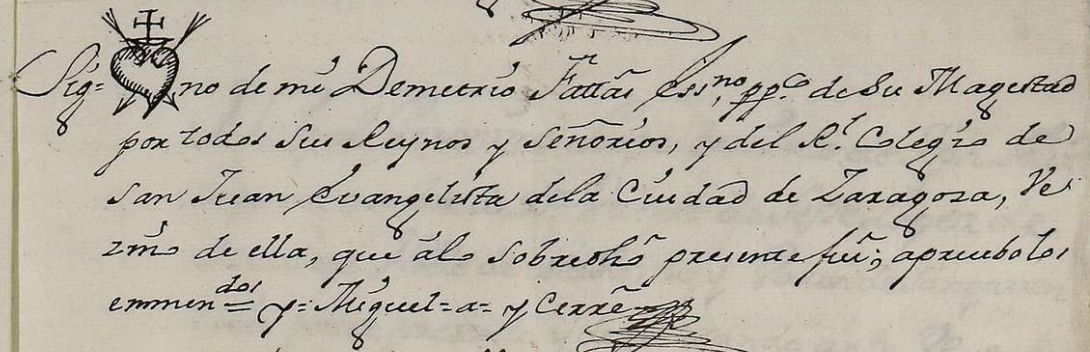 Sig=no de mi Demetrio Fattás Essno, ppco de Su Magestad
por todos sus Reynos y Señorios, y del Rl. Colegio de
San Juan Evangelista dela Ciudad de Zaragoza, Ve
zino de ella, que álo sobredho presente fui; apruebo los
emmendos = y = Miguel = a = y Cerré